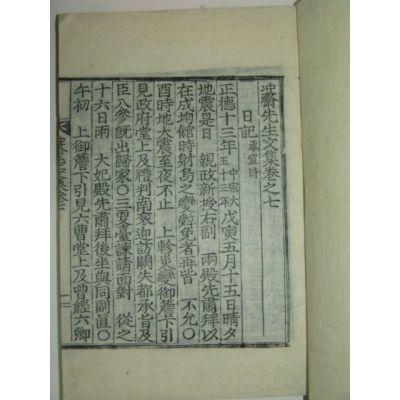 冲齋先生文集卷之七
日記 承宣時
正德十三年 中宗大王十三年 戊寅五月十五日晴夕
地震是日 親政新授右副 兩殿先肅拜以
在成均館時射鳥之變辭免者再皆 不允○
酉時地大震至夜不止 上軫災變御簷下引
見政府堂上及禮判南袞延訪闕失都承旨及
臣入參旣出歸家○三更臺諫請面對 從之
十六日雨 大妃殿先肅拜後坐與同副直○
午初 上御簷下引見六曹堂上及曾經六卿